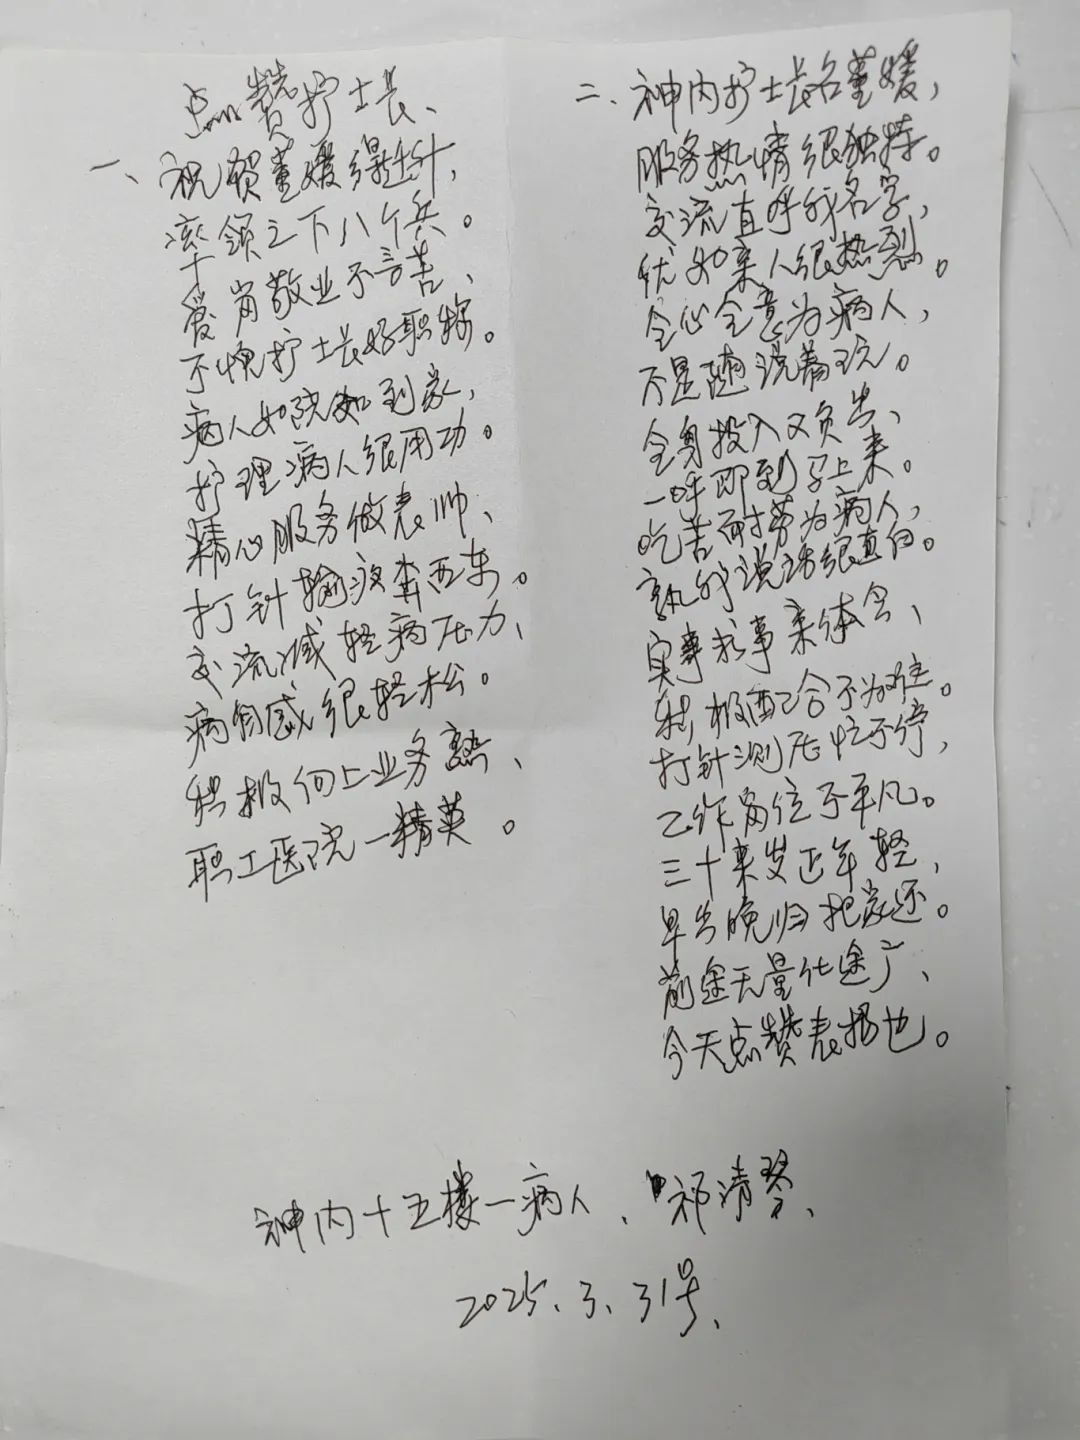 点赞护士长、
一、祝贺董媛得提升，
率领之下八个兵。
爱岗敬业不言苦、
不愧护士长好职称。
病人如院如到家，
护理病人很用功。
精心服务做表帅、
打针输液奔西东。
交流减轻病压力、
病自感很轻松。
积极向上业务熟、
职工医院一精英。
二、神内护士长名董媛，
服务热情很独特。
交流直呼我名字，
优如亲人很热烈。
全心全意为病人，
不是随说着玩。
全身投入又负责、
一呼即到马上来。
吃苦耐劳为病人，
我说话很直白。
实事求事亲体会、
积极配合不为难。
打针测压忙不停，
工作岗位不平凡。
三十来岁正年轻，
早出晚归把家还。
前途无量仕途广、
今天点赞表扬也。
神内十五楼一病人、祁清琴、
2025.3.31号、